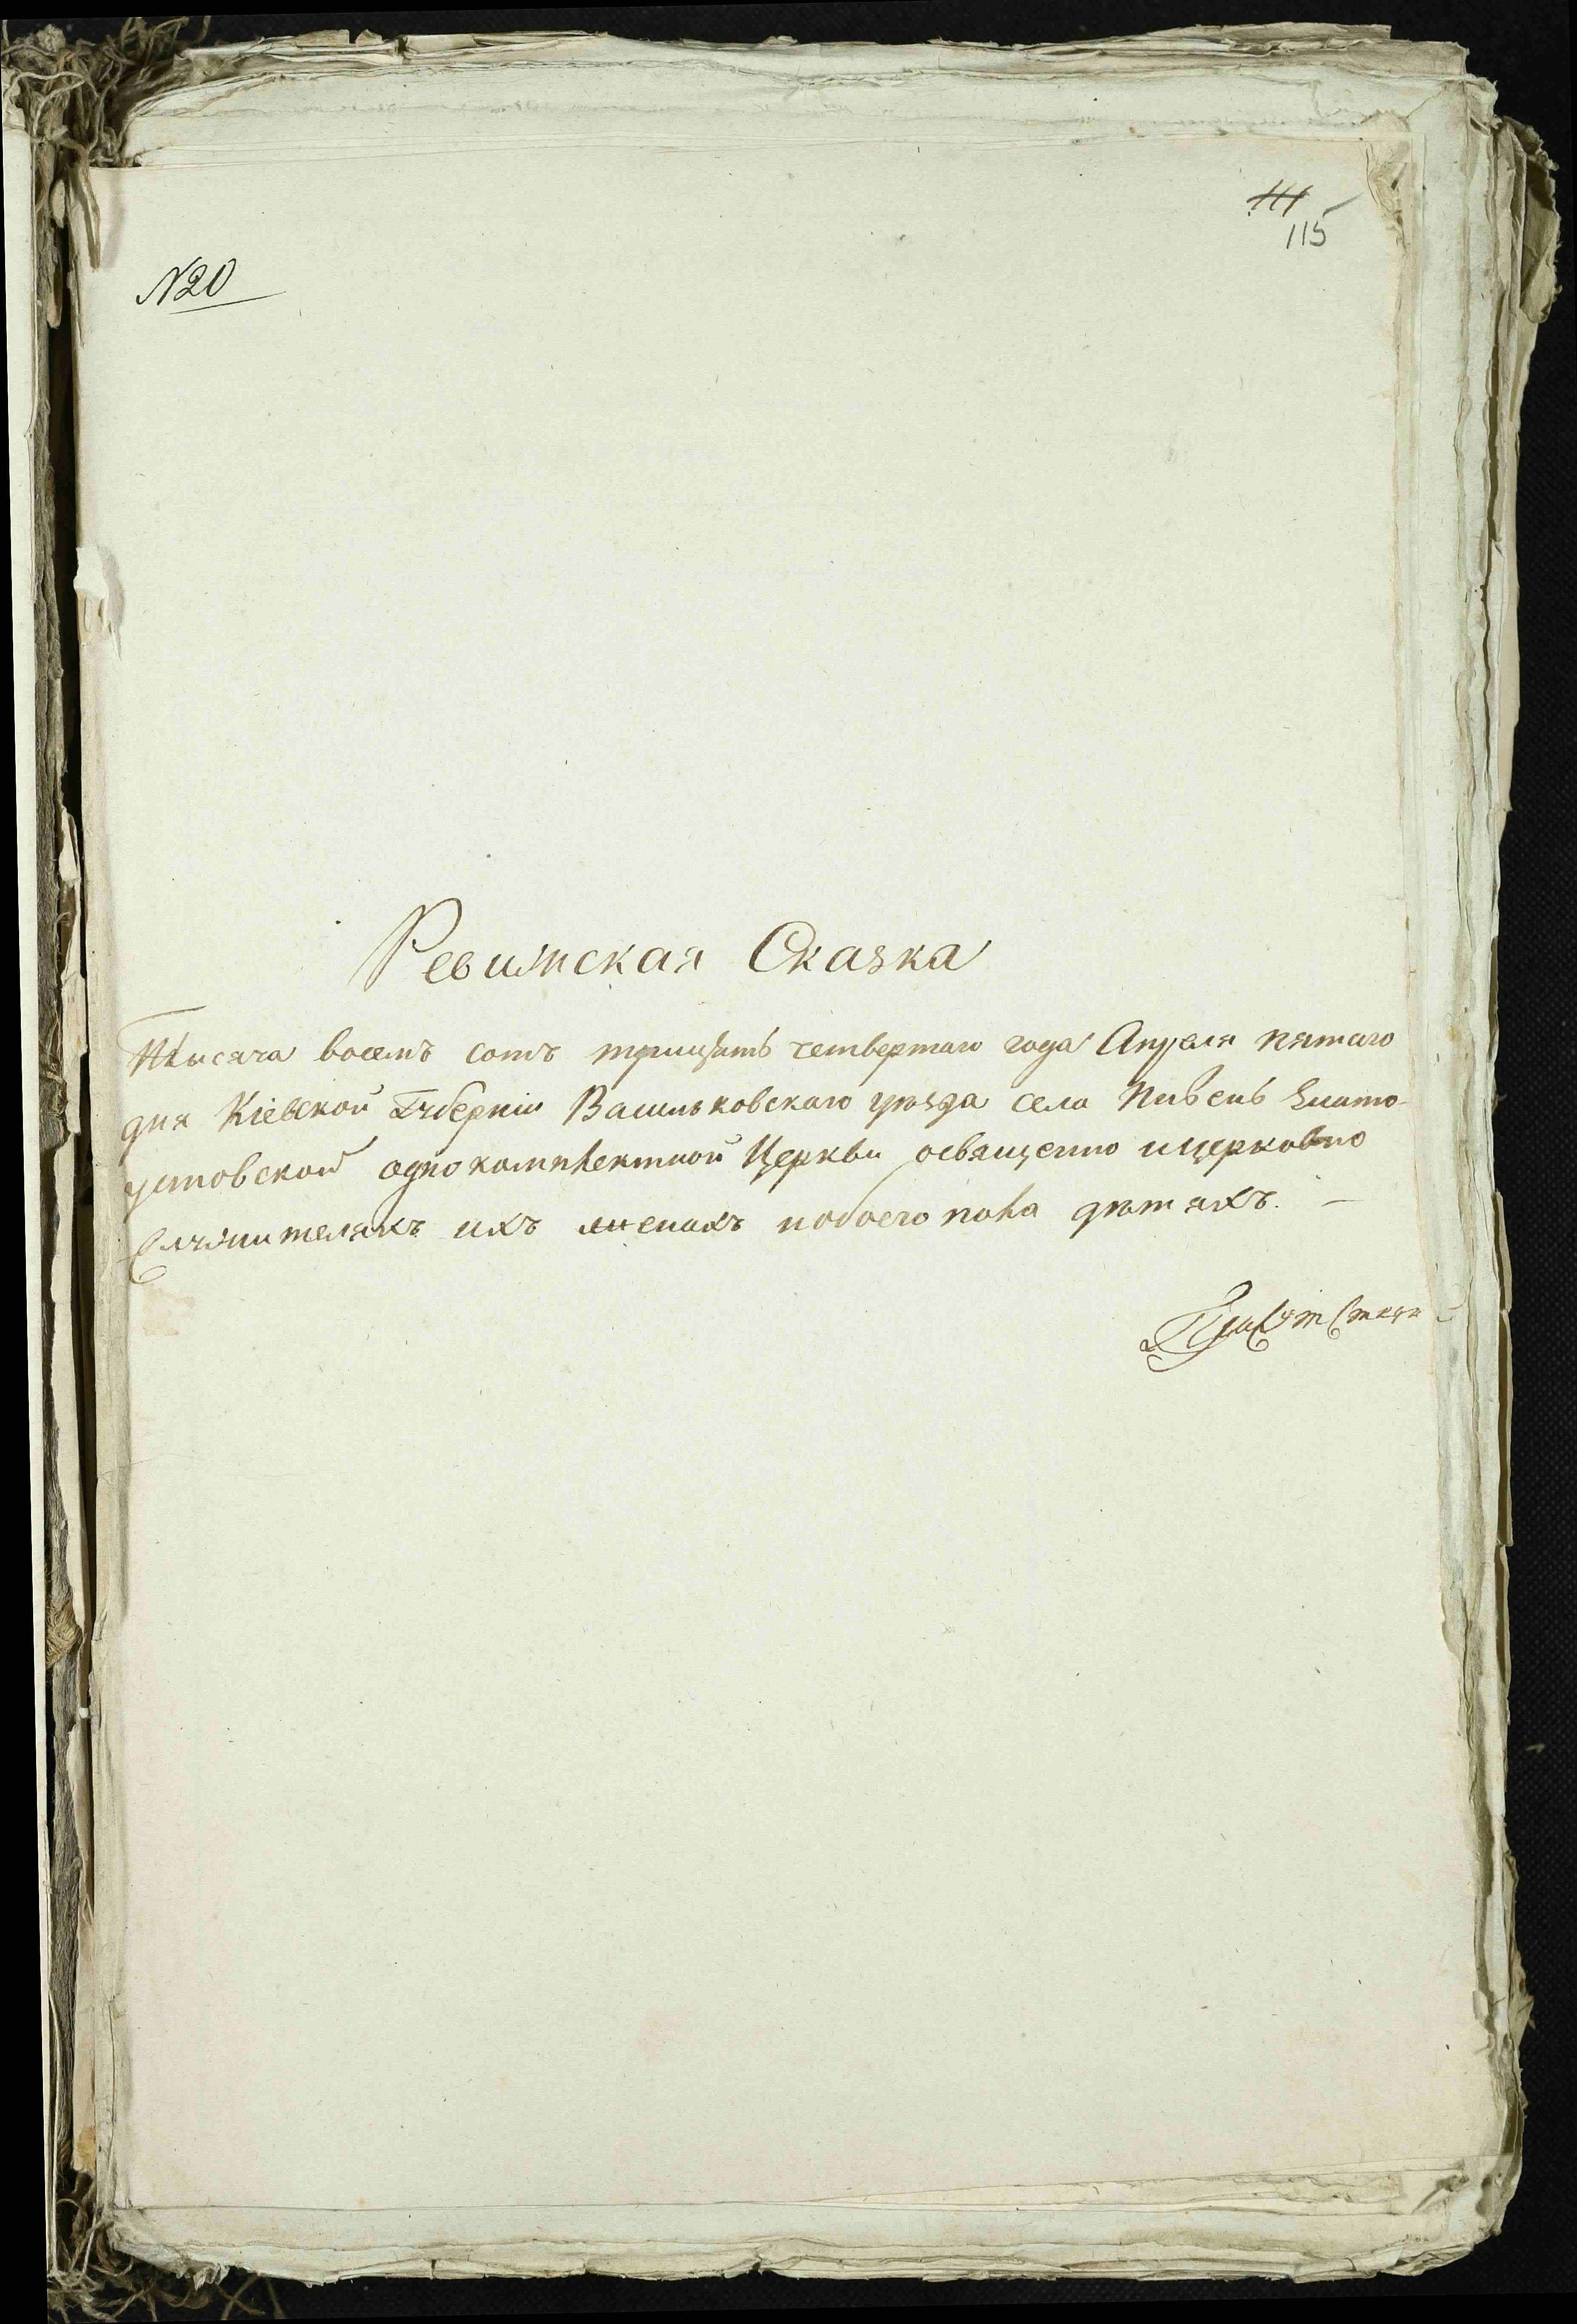 111
115
№20
Ревижская Сказка
Тысяча восемъ сотъ тридцать четвертаго года Апреля пятаго
дня Кіевской Губерніи Васильковскаго уѣзда села Пивень Злато-
устовской однокомплектной Церкви освященно ицерковно
служителяхъ ихъ женахъ иобоего пола дѣтяхъ. —